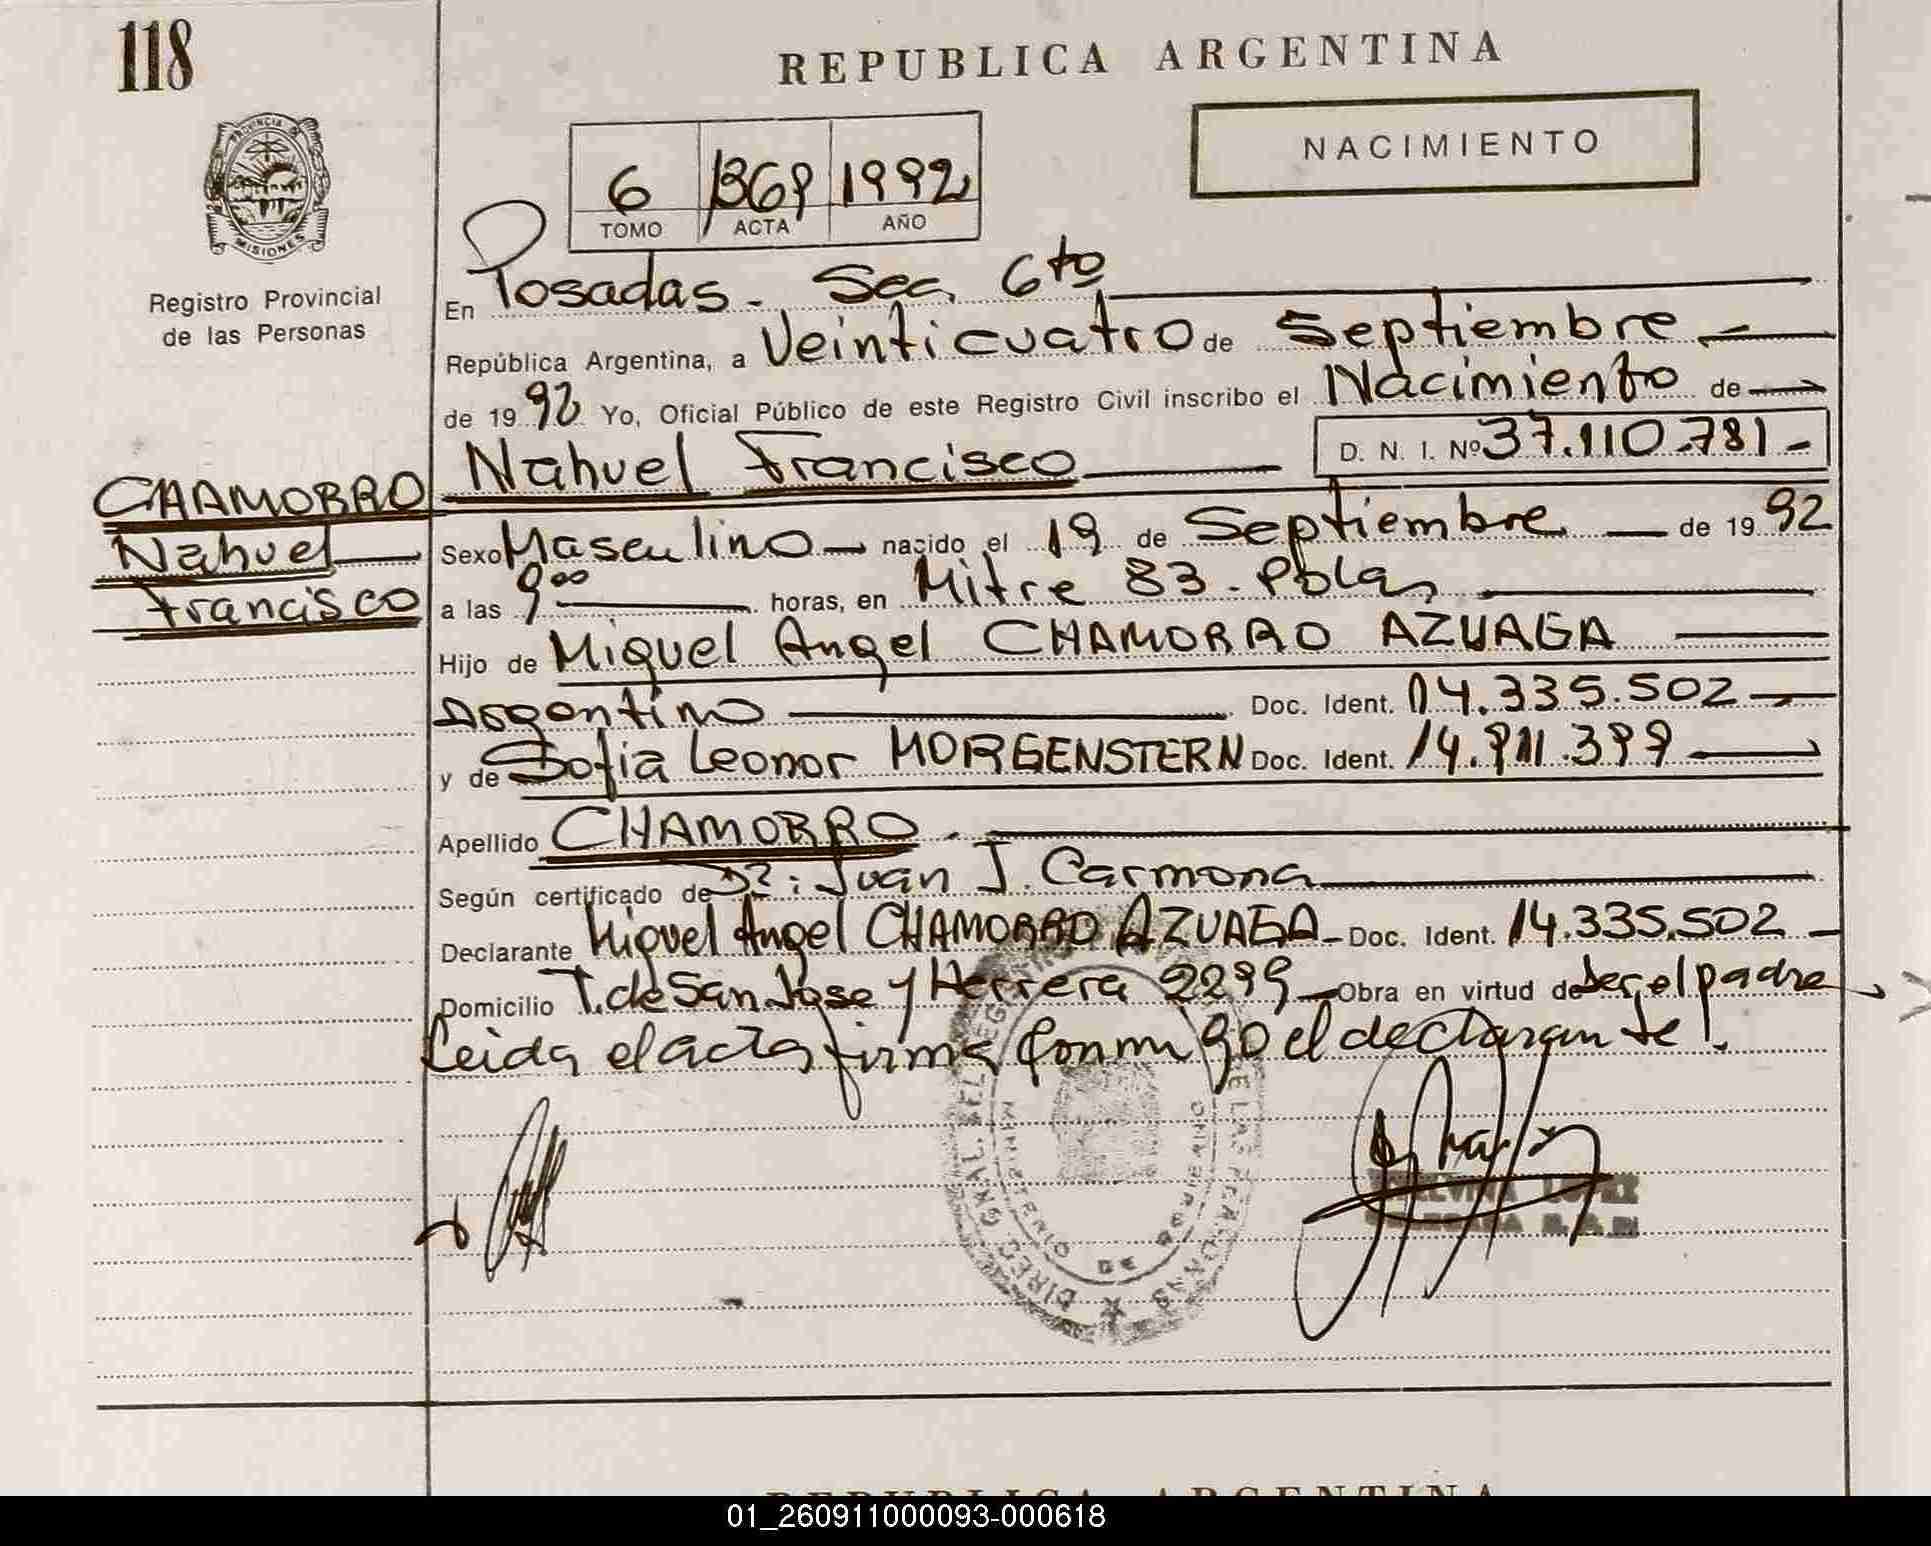 118
REPUBLICA ARGENTINA
NACIMIENTO
PROVINCIA DE
MISIONES
Registro Provincial
de las Personas
6 1369 1992
TOMO ACTA AÑO
En Posadas - Sec. 6to
República Argentina, a Veinticuatro de Septiembre
de 1992 Yo, Oficial Público de este Registro Civil inscribo el Nacimiento de
Nahuel Francisco D. N. I. Nº 37.110.781-
CHAMORRO
Nahuel
Francisco
Sexo Masculino nacido el 19 de Septiembre de 1992
a las 9 00 horas, en Mitre 83 - Pdas
Hijo de Miguel Angel CHAMORRO AZUAGA
Argentino Doc. Ident. 14.335.502
y de Sofia Leonor MORGENSTERN Doc. Ident. 14.911.399
Apellido CHAMORRO.
Según certificado de Dr: Juan J. Carmona
Declarante Miguel Angel CHAMORRO AZUAGA - Doc. Ident. 14.335.502
Domicilio T. de San Jose y Herrera 2299 Obra en virtud de ser el padre
Leida el acta firma conmigo el declarante!.
DIRECC. GRAL. DEL REGISTRO DE LAS PERSONAS
MINISTERIO DE GOBIERNO
LOPEZ
REPUBLICA ARGENTINA
01_260911000093-000618